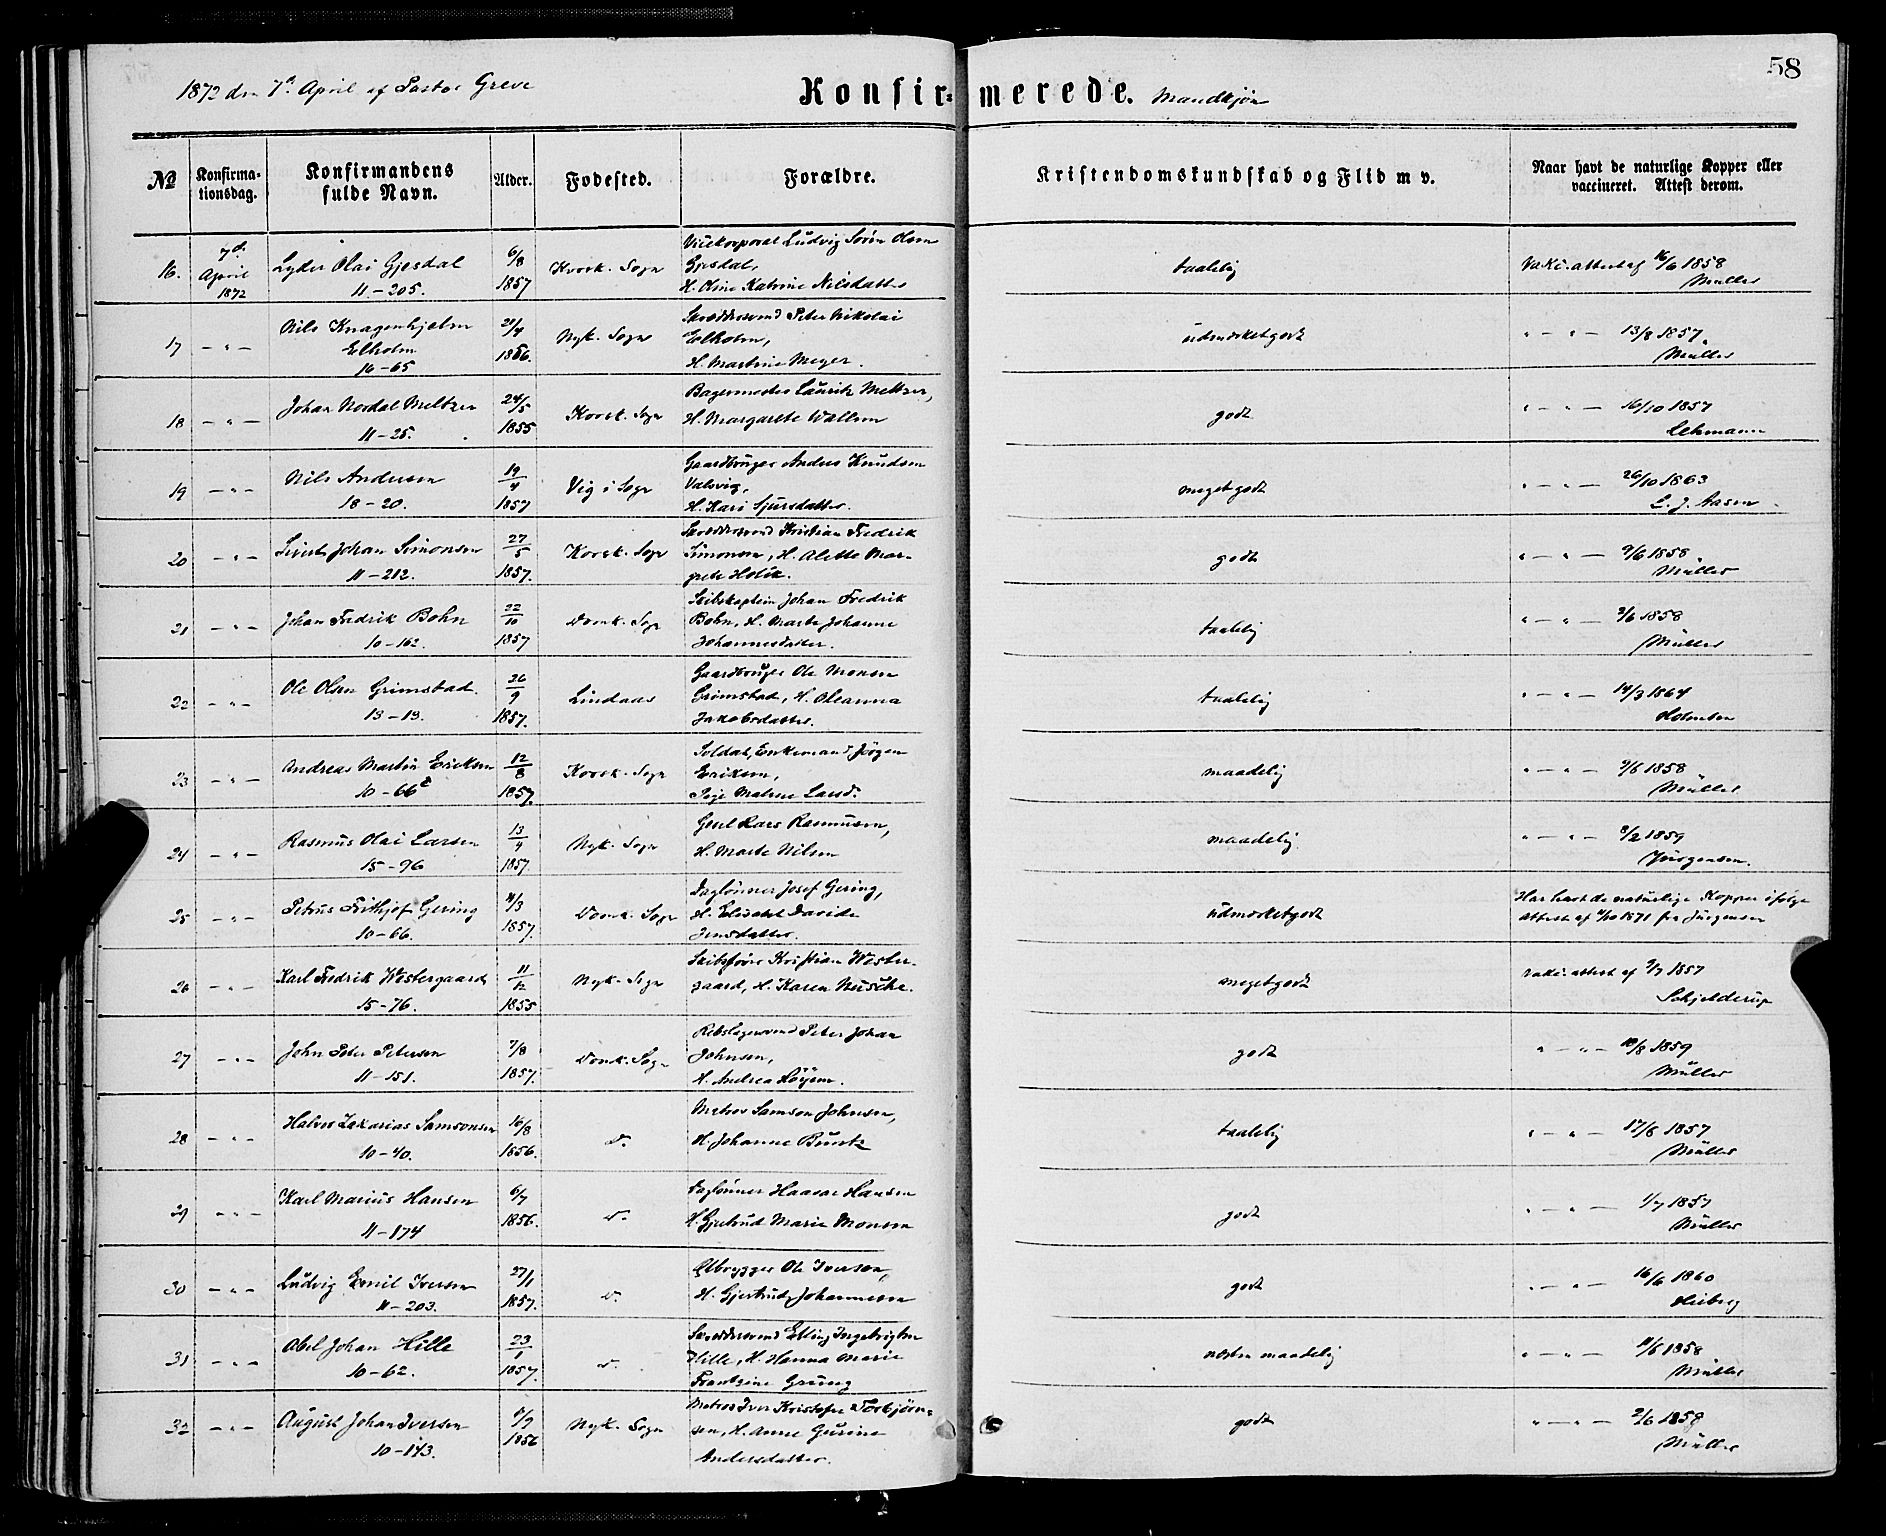 58
1872 den 7de April af Pastor Greve
Konfirmerede. Mandkjøn
No
Konfirmationsdag.
Konfirmandens fulde Navn.
Alder.
Fødested.
Forældre.
Kristendomskundskab og Flid m v.
Naar havt de naturlige Kopper eller vaccineret. Attest derom.
16. 7d. April 1872 Lyder Olai Gjesdal 6/8 1857 Korsk. Sogn Vicekorporal Ludvig Sørin Olsen taalelig Vakc. attest af 16/6 1858
11-205. Gjesdal, Müller
H. Oline Katrine Nilsdatter
17 - " - Nils Knagenhjelm 21/4 1856. Nyk. Sogn Skræddersvend Peter Nikolai udmærketgodt " - " - 13/8 1857
Elholm Elholm, Müller
16-65 H. Martine Meyer.
18 - " - Johan Nordal Meltzer 24/5 1855 Korsk. Sogn Bagermester Lauritz Meltzer, godt " - " - 16/10 1857
11-25. H. Margarete Wallem Lehmann
19 - " - Nils Andersen 19/4 1857 Vig i Sogn Gaardbruger Anders Knudsen megetgodt " - " - 26/10 1863
18-20. L. J. Aasen
H. Kari Sjursdatter.
20 - " - Johan Simonsen 27/5 1857. Korsk. Sogn Skræddersvend Kristian Fredrik godt " - " - 9/6 1858
11-212. Simonsen, H. Alette Mar- Müller
grete Holck.
21 - " - Johan Fredrik Bohn 22/10 1857 Domk. Sogn Skibskaptein Johan Fredrik taalelig " - " - 3/6 1858
10-162. Bohn, H. Marta Johanne Müller
Johannesdatter.
22 - " - Ole Olsen Grimstad 26/9 1857. Lindaas Gaardbruger Ole Monsen taalelig " - " - 14/3 1864
13-13. Grimstad, H. Oleanna Holmsen
Jakobsdatter.
23 - " - Andreas Martin Eriksen 12/8 1857. Korsk. Sogn Soldat, Enkemand, Jörgen maadelig " - " - 9/6 1858
10-66 Eriksen, Müller
Pige Malene Larsd.
24 - " - Rasmus Olai Larsen 13/4 1857. Nyk. Sogn Lars Rasmusen, maadelig " - " - 8/2 1859
15-96 H. Marte Nilsen Jürgensen.
25 - " - Petrus Frithjof Gering 4/3 1857. Domk. Sogn Daglønner Josef Gering, udmærketgodt Har havt de naturlige Kopper ifølge
10-66. H. Elisabet Davide attest af 1871 fra Jürgensen
Jensdatter.
26 - " - Karl Fredrik Westergaard 11/12 1855 Nyk. Sogn Skibsfører Kristian Wester- megetgodt Vakc. attest af 9/7 1857
15-76. gaard, H. Karen Schjelderup
27 - " - John Peter Petersen 7/8 1857. Domk. Sogn Rebslagersvend Peter Johan godt " - " - 18/8 1859
11-151. Johnsen, Müller
H. Andrea
28 - " - Halvor Zakarias Samsonsen 16/8 1856. do Matros Samson Johnsen, taalelig " - " - 17/8 1857
10-40. H. Johanne Buntz Müller
29 - " - Karl Marius Hansen 6/7 1856. do Daglønner Haavar Hansen godt " - " - 1/7 1857
11-174 H. Gjertrud Marie Monsen Müller
30 - " - Ludvig Emil Iversen 27/1 1857. do Ølbrygger Ole Iversen, godt " - " - 16/6 1860
11-203. H. Gjertrud Johannesen Heiberg
31 - " - Abel Johan Hille 23/1 1857. do Skræddersvend Elling Ingebrigtsen næsten maadelig " - " - 11/6 1858
10-62. Hille, H. Hanna Marie Müller
Frantzine Grung
32 - " - August Johan Iversen 1856 Nyk. Sogn Matros Iver Kristofer Torbjørn- godt " - " - 2/6 1858
10-143. sen, H. Anne Gurine Müller
Andersdatter.